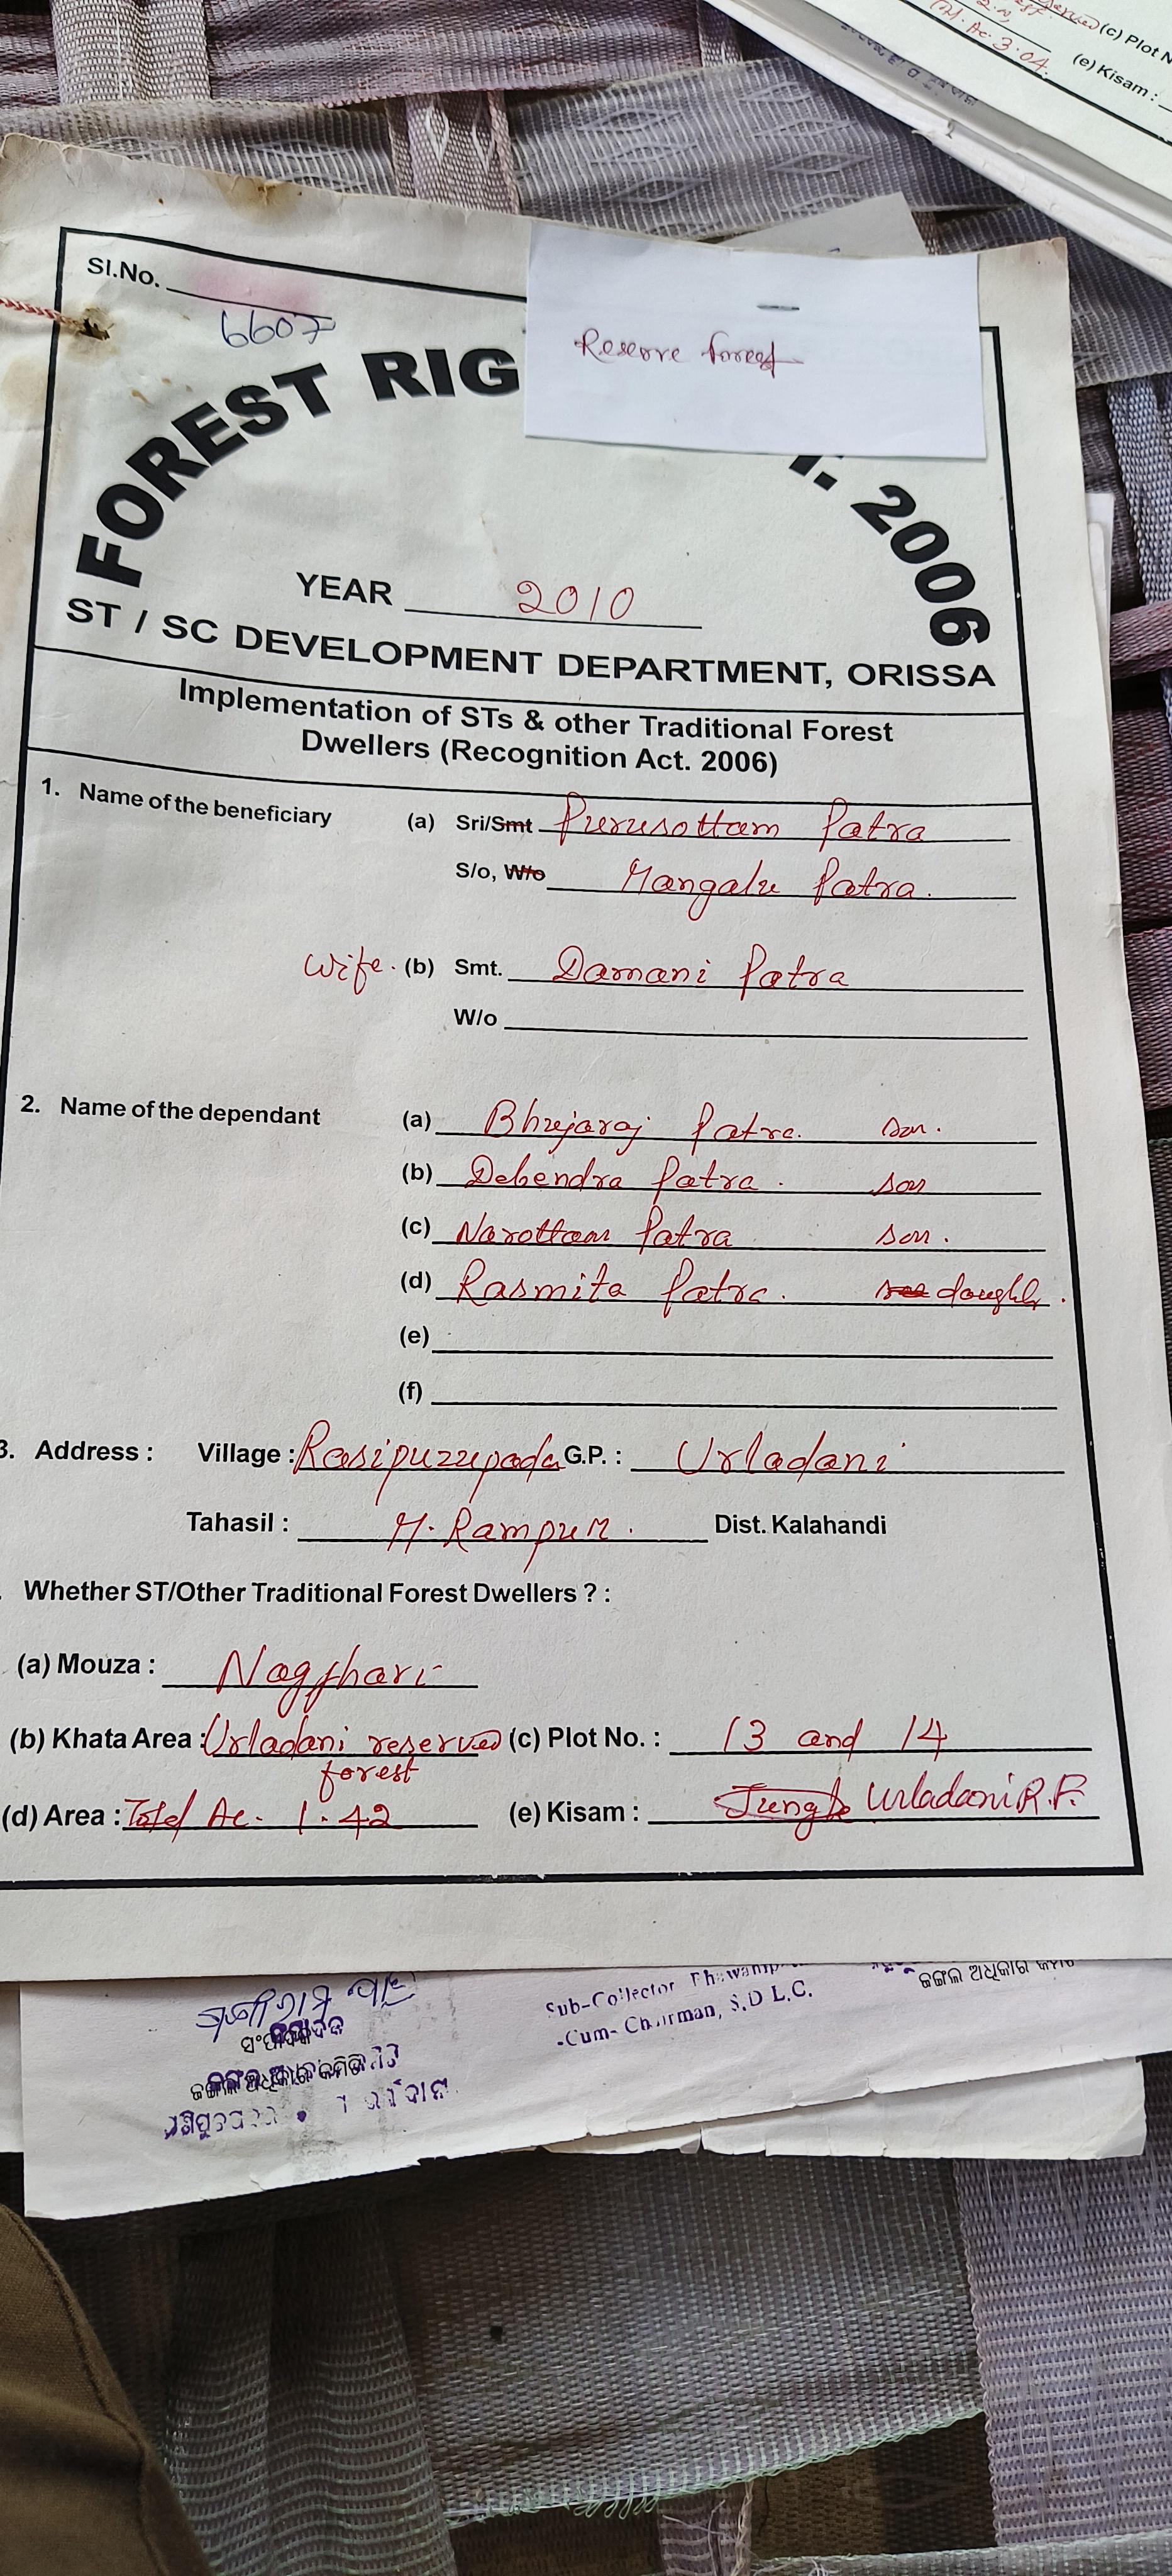 (c) Plot N
(2). Ac. 3.04.
(e) Kisam :
Sl.No.
6607
Reserve forest
FOREST RIG
T. 2006
YEAR 2010
ST / SC DEVELOPMENT DEPARTMENT, ORISSA
Implementation of STs & other Traditional Forest
Dwellers (Recognition Act. 2006)
1. Name of the beneficiary (a) Sri/Smt Purusottam Patra
S/o, W/o Mangalu Patra.
Wife. (b) Smt. Damani Patra
W/o
2. Name of the dependant (a) Bhujaraj Patra. son.
(b) Debendra Patra. son
(c) Narottam Patra son.
(d) Rasmita Patra. daughter.
(e)
(f)
3. Address : Village : Rasipurupada G.P. : Urladani
Tahasil : M. Rampur. Dist. Kalahandi
Whether ST/Other Traditional Forest Dwellers ? :
(a) Mouza : Nagjhari
(b) Khata Area : Urladani reserved (c) Plot No. : 13 and 14
forest
(d) Area : Total Ac. 1.42 (e) Kisam : Jungle Urladani R.F.
Sub-Collector
-Cum- Chairman, S.D.L.C.
ଜଙ୍ଗଲ ଅଧିକାର
ସଂପାଦକ
ଜଙ୍ଗଲ ଅଧିକାର କମିଟି